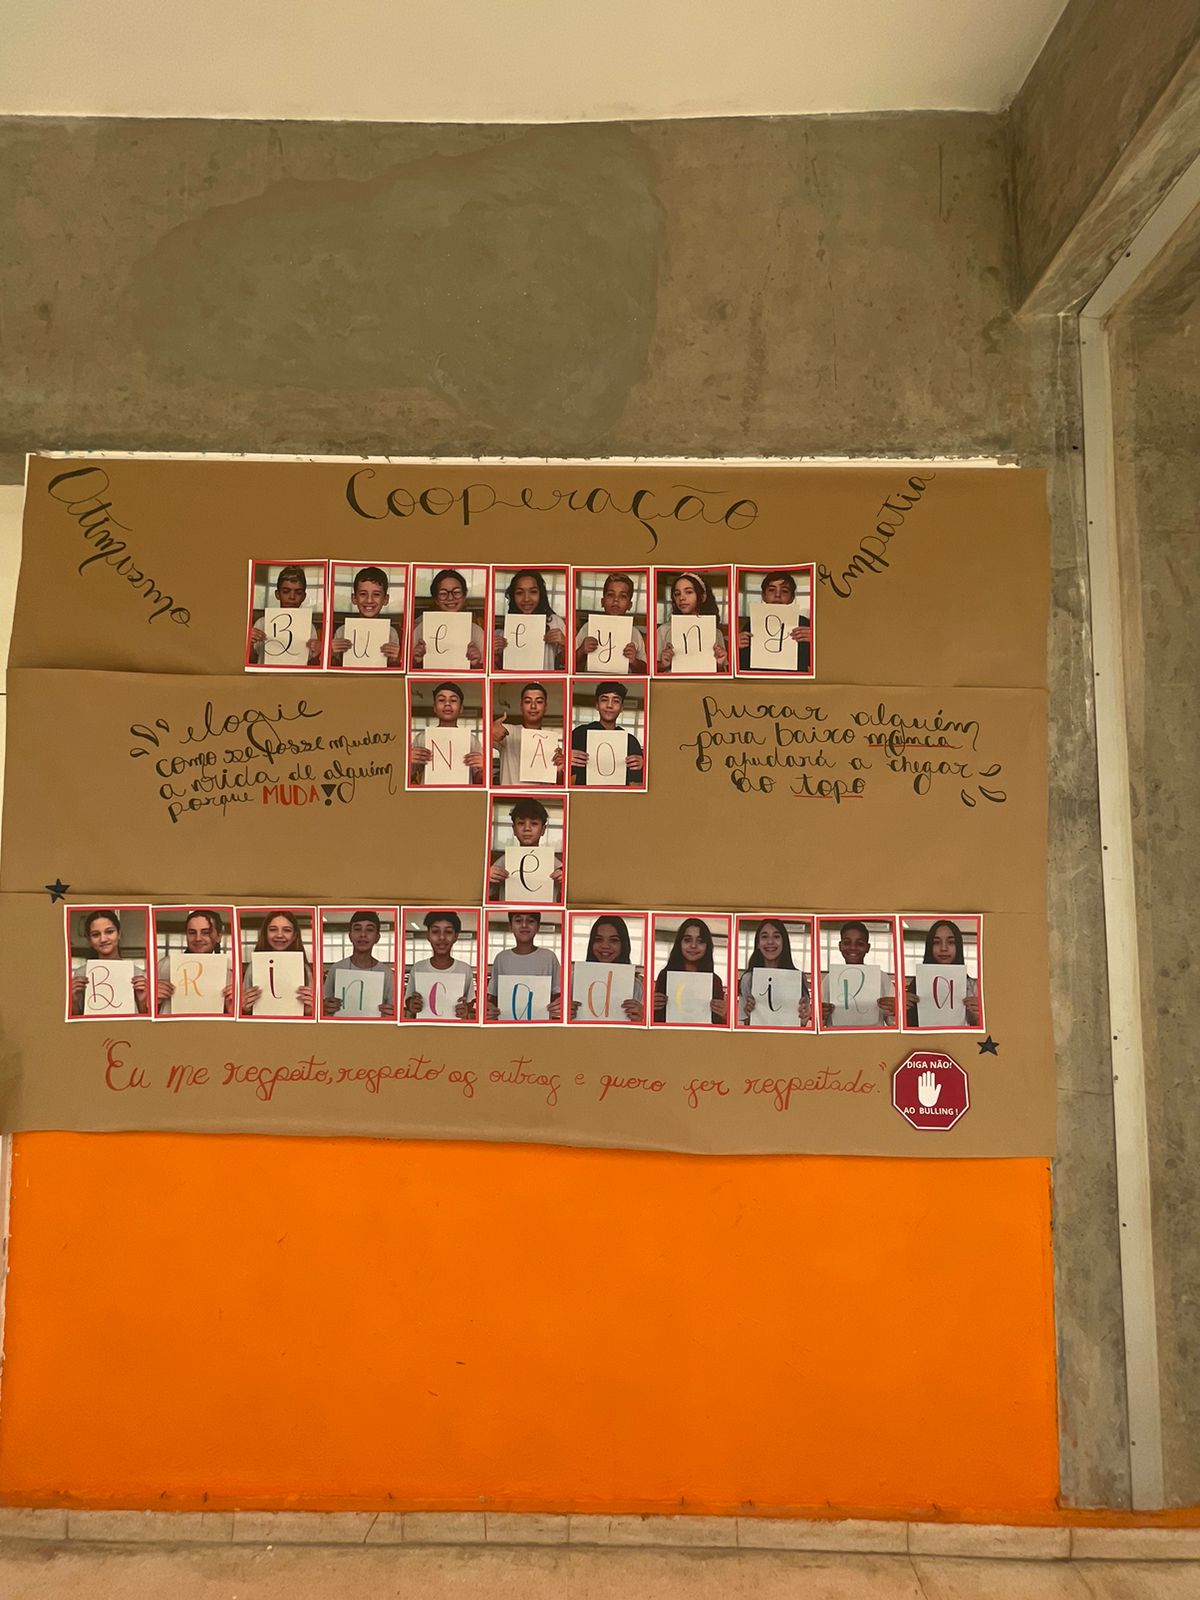 Cooperação
Empatia
Bullyng
NÃO
É
"elogie
como se fosse mudar
a vida de alguém
porque MUDA!"
Puxar alguém
para baixo nunca
o ajudará a chegar
ao topo"
BRincadeiRa
"Eu me respeito, respeito os outros e quero ser respeitado."
DIGA NÃO!
AO BULLING!